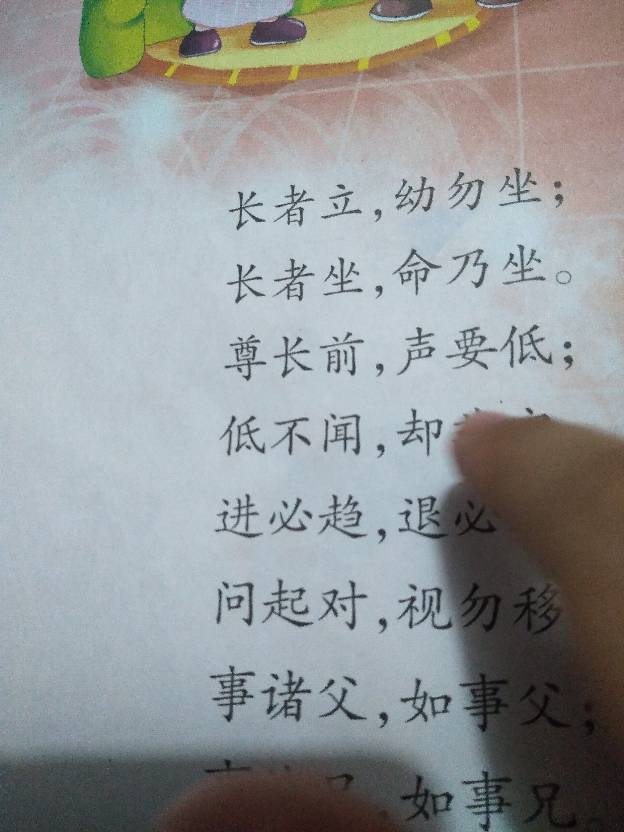 长者立，幼勿坐；
长者坐，命乃坐。
尊长前，声要低；
低不闻，却
进必趋，退必
问起对，视勿移
事诸父，如事父；
如事兄。